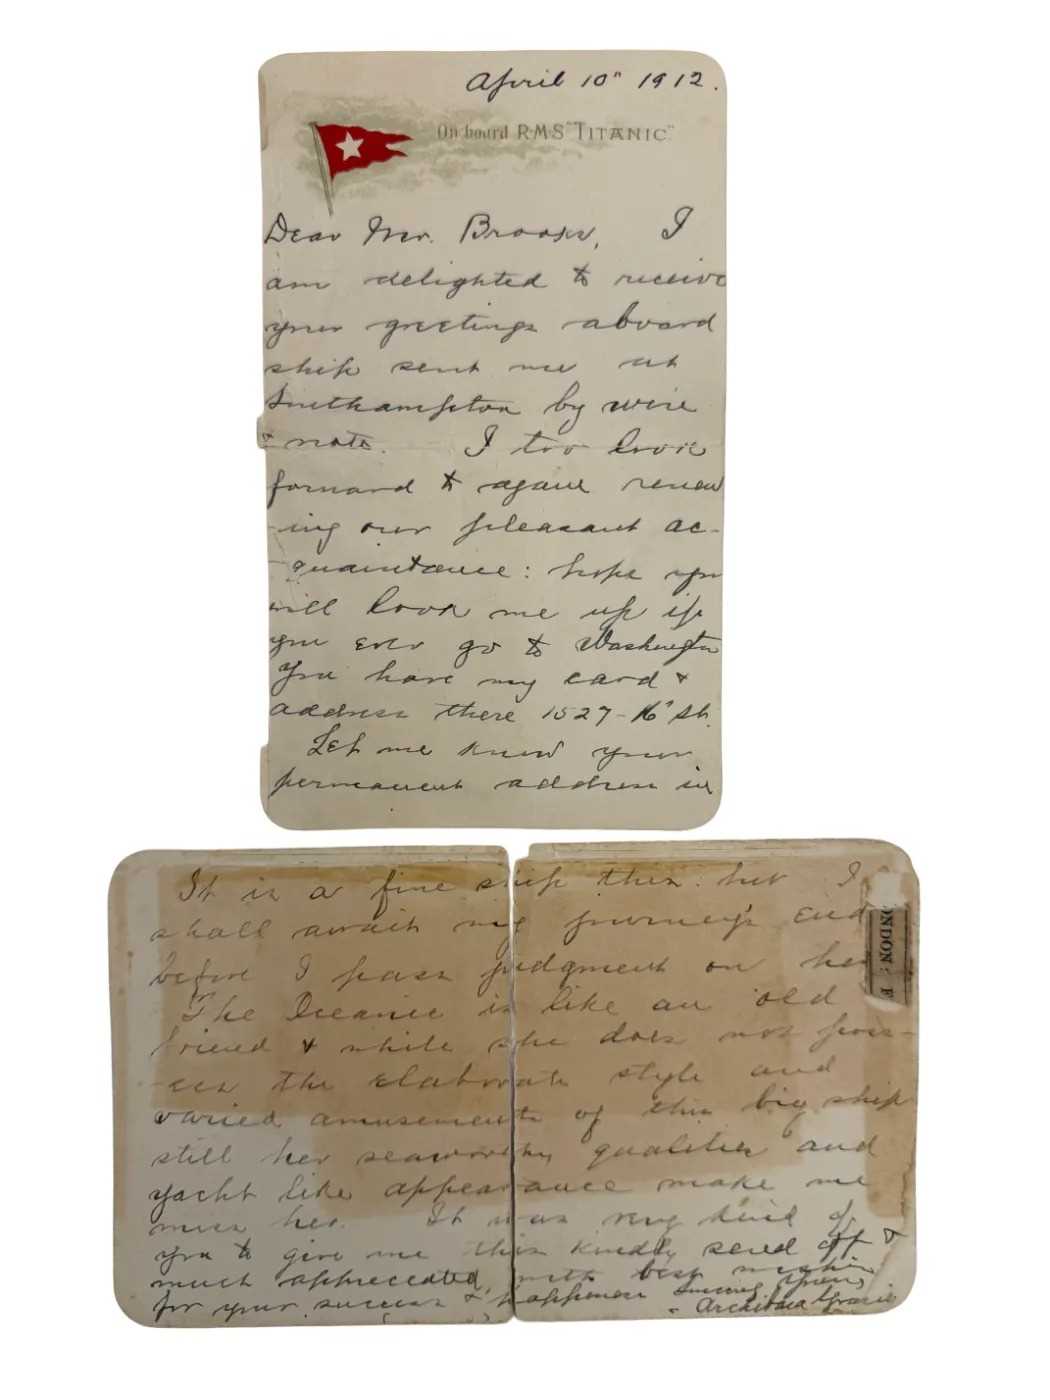 April 10" 1912.
On board RMS "TITANIC"
Dear Mr. Brooks, I
am delighted to receive
your greetings aboard
ship sent me at
Southampton by wire
& note. I too look
forward to again renew
-ing our pleasant ac-
quaintance: hope you
will look me up if
you ever go to Washington
You have my card &
address there 1527-16" St.
Let me know your
permanent address in
It is a fine ship this: but I
shall await my journeys end
before I pass judgment on her
The Oceanic is like an old
friend & while she does not poss-
-ess the elaborate style and
varied amusements of this big ship
still her seaworthy qualities and
yacht like appearance make me
miss her. It was very kind of
you to give me this kindly send off &
much appreciated, with best wishes
for your success & happiness Sincerely Yours
Archibald Gracie
ONDON: F